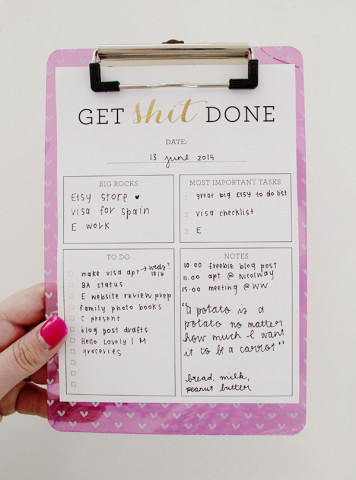 GET shit DONE
DATE:
13 june 2014
BIG ROCKS
Etsy store ♥
visa for spain
E work
MOST IMPORTANT TASKS
1 great big Etsy to do list
2 visa checklist
3 E
TO DO
make visa apt → weds?
18/6
BA status
E website review prep
family photo books
C present
blog post drafts
Hello Lovely | M
groceries
NOTES
10.00 freebie blog post
11.00 apt @ Nicolway
15.00 meeting @ WW
"a potato is a
potato no matter
how much I want
it to be a carrot"
bread, milk,
peanut butter